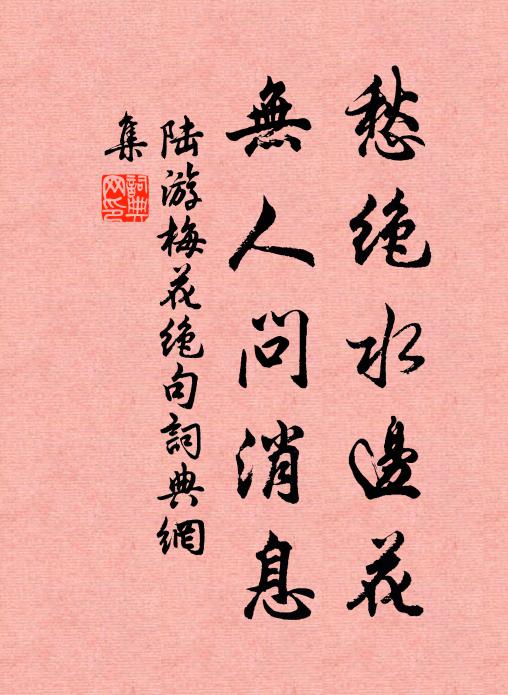 愁绝水邊花
無人問消息
陆游梅花绝句詞典網
集
詞典网印